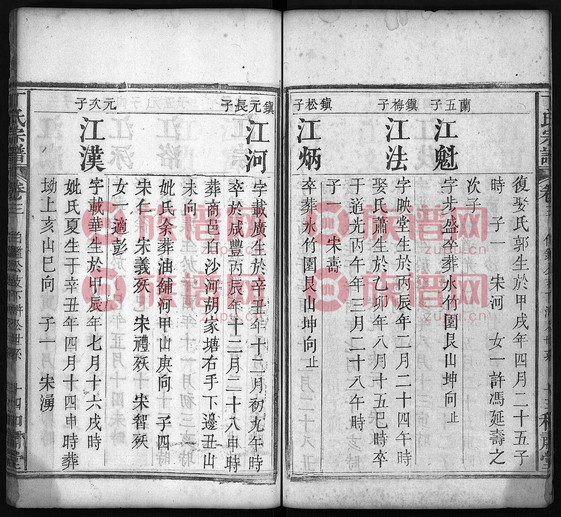 復娶氏郭生於甲戌年四月二十五子
時 子一 宋河 女一許馮延壽之
次子
蘭五子
江魁
字步盛卒葬水竹園艮山坤向止
鎮梅子
江法
字映堂生於丙辰年二月二十四午時
娶氏蕭生於乙卯年八月二十八午時
于道光丙午年三月二十八午時
子一 宋壽
鎮松子
江炳
卒葬水竹園艮山坤向止
鎮元長子
江河
字載廣生於辛丑年十二月初九午時
卒於咸豐丙辰年十二月二十八申時
葬商邑白沙河胡家塘右手下邊丑山
未向
妣氏余葬油鋪河甲山庚向 子四
宋仁 宋義殀 宋禮殀 宋智殀
女一適彭
元次子
江漢
字載華生於甲辰年七月十六戌時
妣氏夏生于辛丑年四月十四申時葬
坳上亥山巳向 子一 宋湧
氏宗譜
卷三
族谱网
zupu.cn